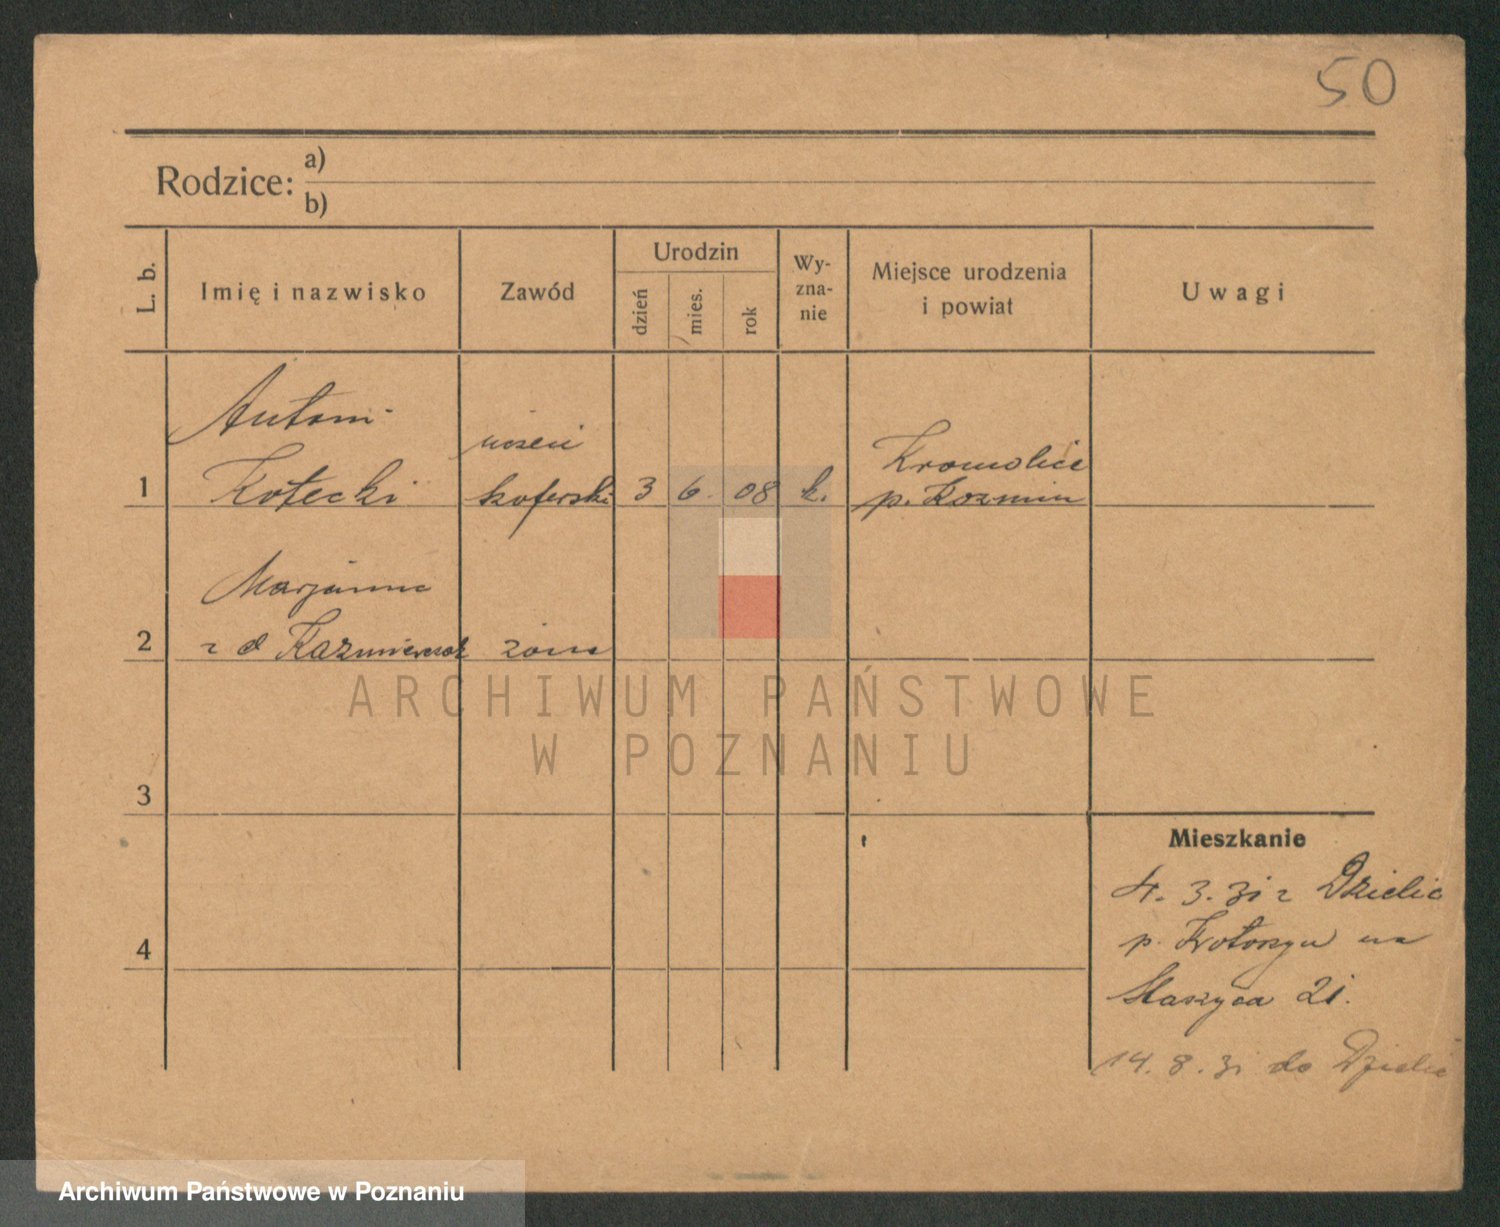 50
Rodzice: a)
b)
L. b.
Imię i nazwisko
Zawód
Urodzin
dzień
mies.
rok
Wy-
zna-
nie
Miejsce urodzenia
i powiat
Uwagi
Antoni
Kotecki
uczeń
szoferski
1
3
6.
08
k.
Kromolice
p. Kozmin
Marjanna
2
z d Kazmierczak
żona
3
4
Mieszkanie
4. 3. 31 z Dzielic
p. Krotoszyn na
Staszyca 21.
14. 8. 31 do Dzielic
ARCHIWUM PAŃSTWOWE
W POZNANIU
Archiwum Państwowe w Poznaniu